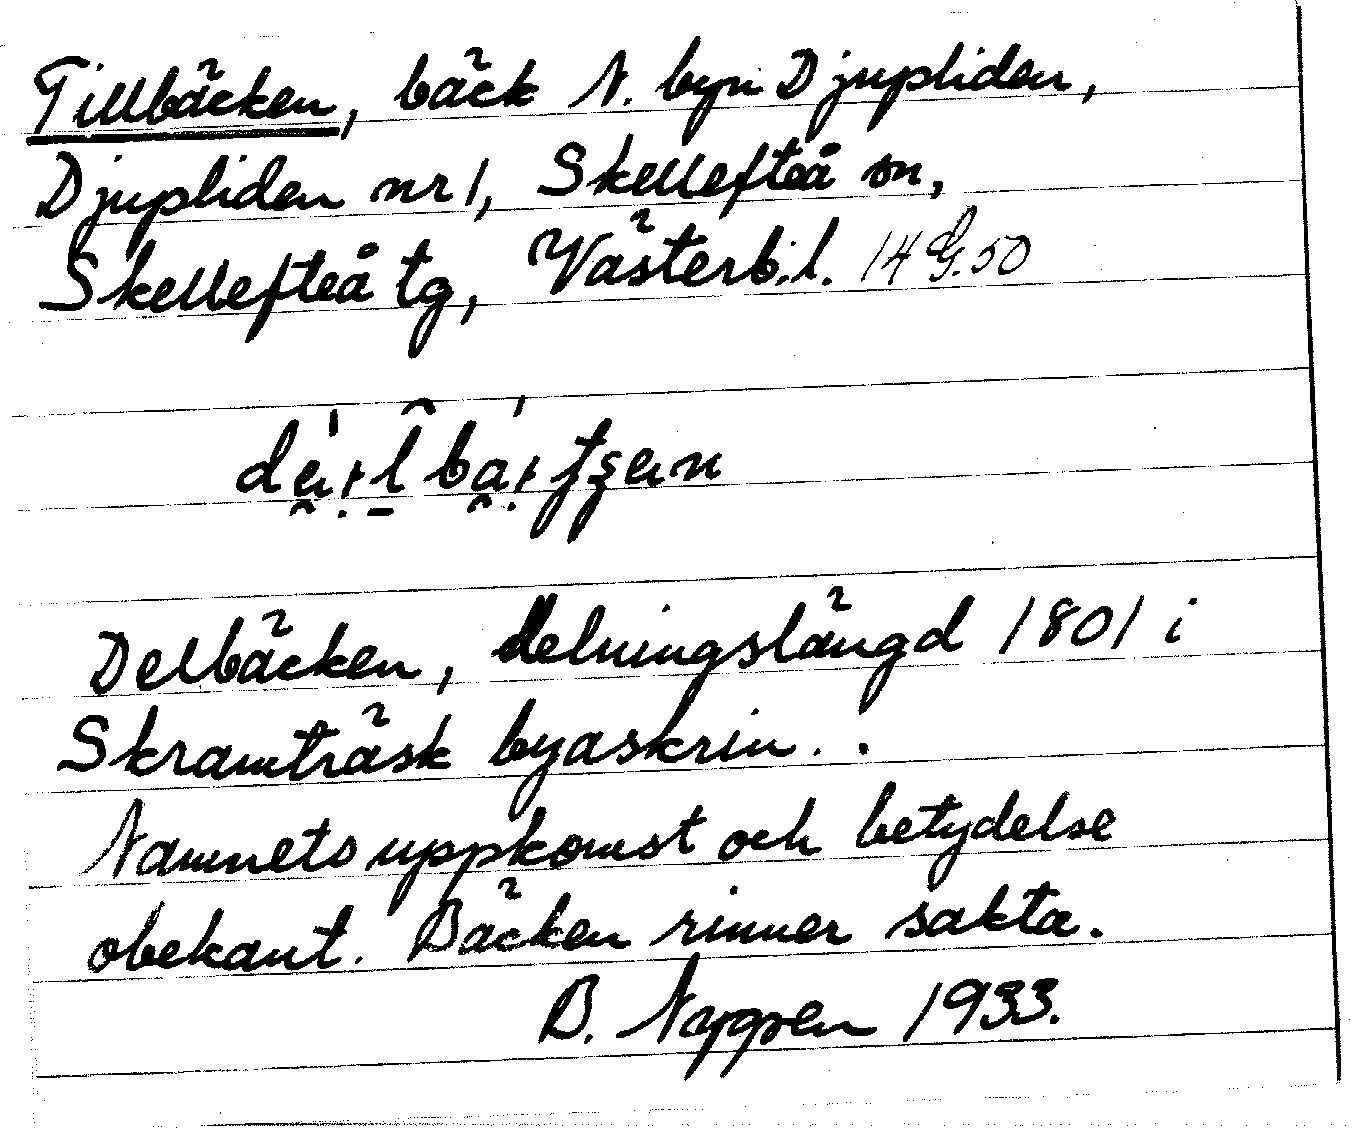 Tillbäcken, bäck N. byn Djupliden,
Djupliden nr 1, Skellefteå sn,
Skellefteå tg, Västerb. l. 14 G. 50
Delbäcken, delningslängd 1801 i
Skramträsk byaskrin. .
Namnets uppkomst och betydelse
obekant. Bäcken rinner sakta.
B. Nygren 1933.